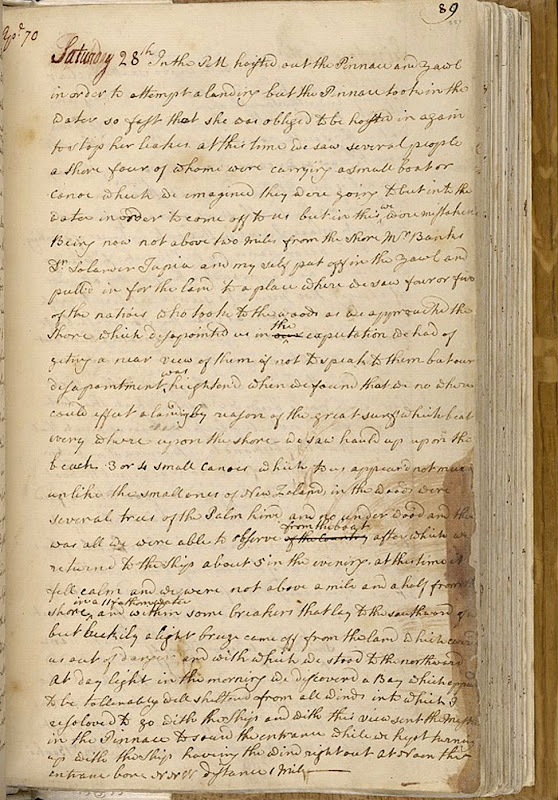 89
Apl 70
Saturday 28th In the PM hoisted out the Pinnace and Yawl
in order to attempt a landing but the Pinnace took in the
Water so fast that she was obliged to be hoisted in again
to stop her leakes. at this time we saw several people
a shore four of whome were carrying a small boat or
Canoe which we imagined they were going to put into the
water in order to come off to us but in this we were mistaken
Being now not above two Miles from the shore Mr Banks
Dr Solander Tupia and my self put off in the yawl and
pull'd in for the land to a place where we saw four or five
of the natives who took to the woods as we approached the
Shore which disapointed us in the our expectation we had of
geting a near view of them if not to speak to them but our
disapointment was heightend when we found that we no where
could effect a landing by reason of the great surff which beat
every where upon the shore. we saw hauld up upon the
beach 3 or 4 small Canoes which to us appeard not much
unlike the small ones of New Zeland, in the woods were
several trees of the Palm kind and no under wood and this
was all we were able to observe from the boat of the Country after which we
returnd to the Ship about 5 in the evening. at this time it
fell calm and we were not above a mile and a half from the
shore, in a 11 fathom water and within some breakers that lay to the southward of us
but luckily a light breeze came off from the land which carried
us out of danger and with which we stood to the northward
At day light in the morning we discoverd a Bay which appeard
to be tollerably well shelterd from all winds into which I
resoloved to go with the Ship and with this view sent the Master
in the Pinnace to sound the entrance while we kept turning
up with the Ship haveing the wind right out at Noon the
entrance bore NNW distance 1 Mile